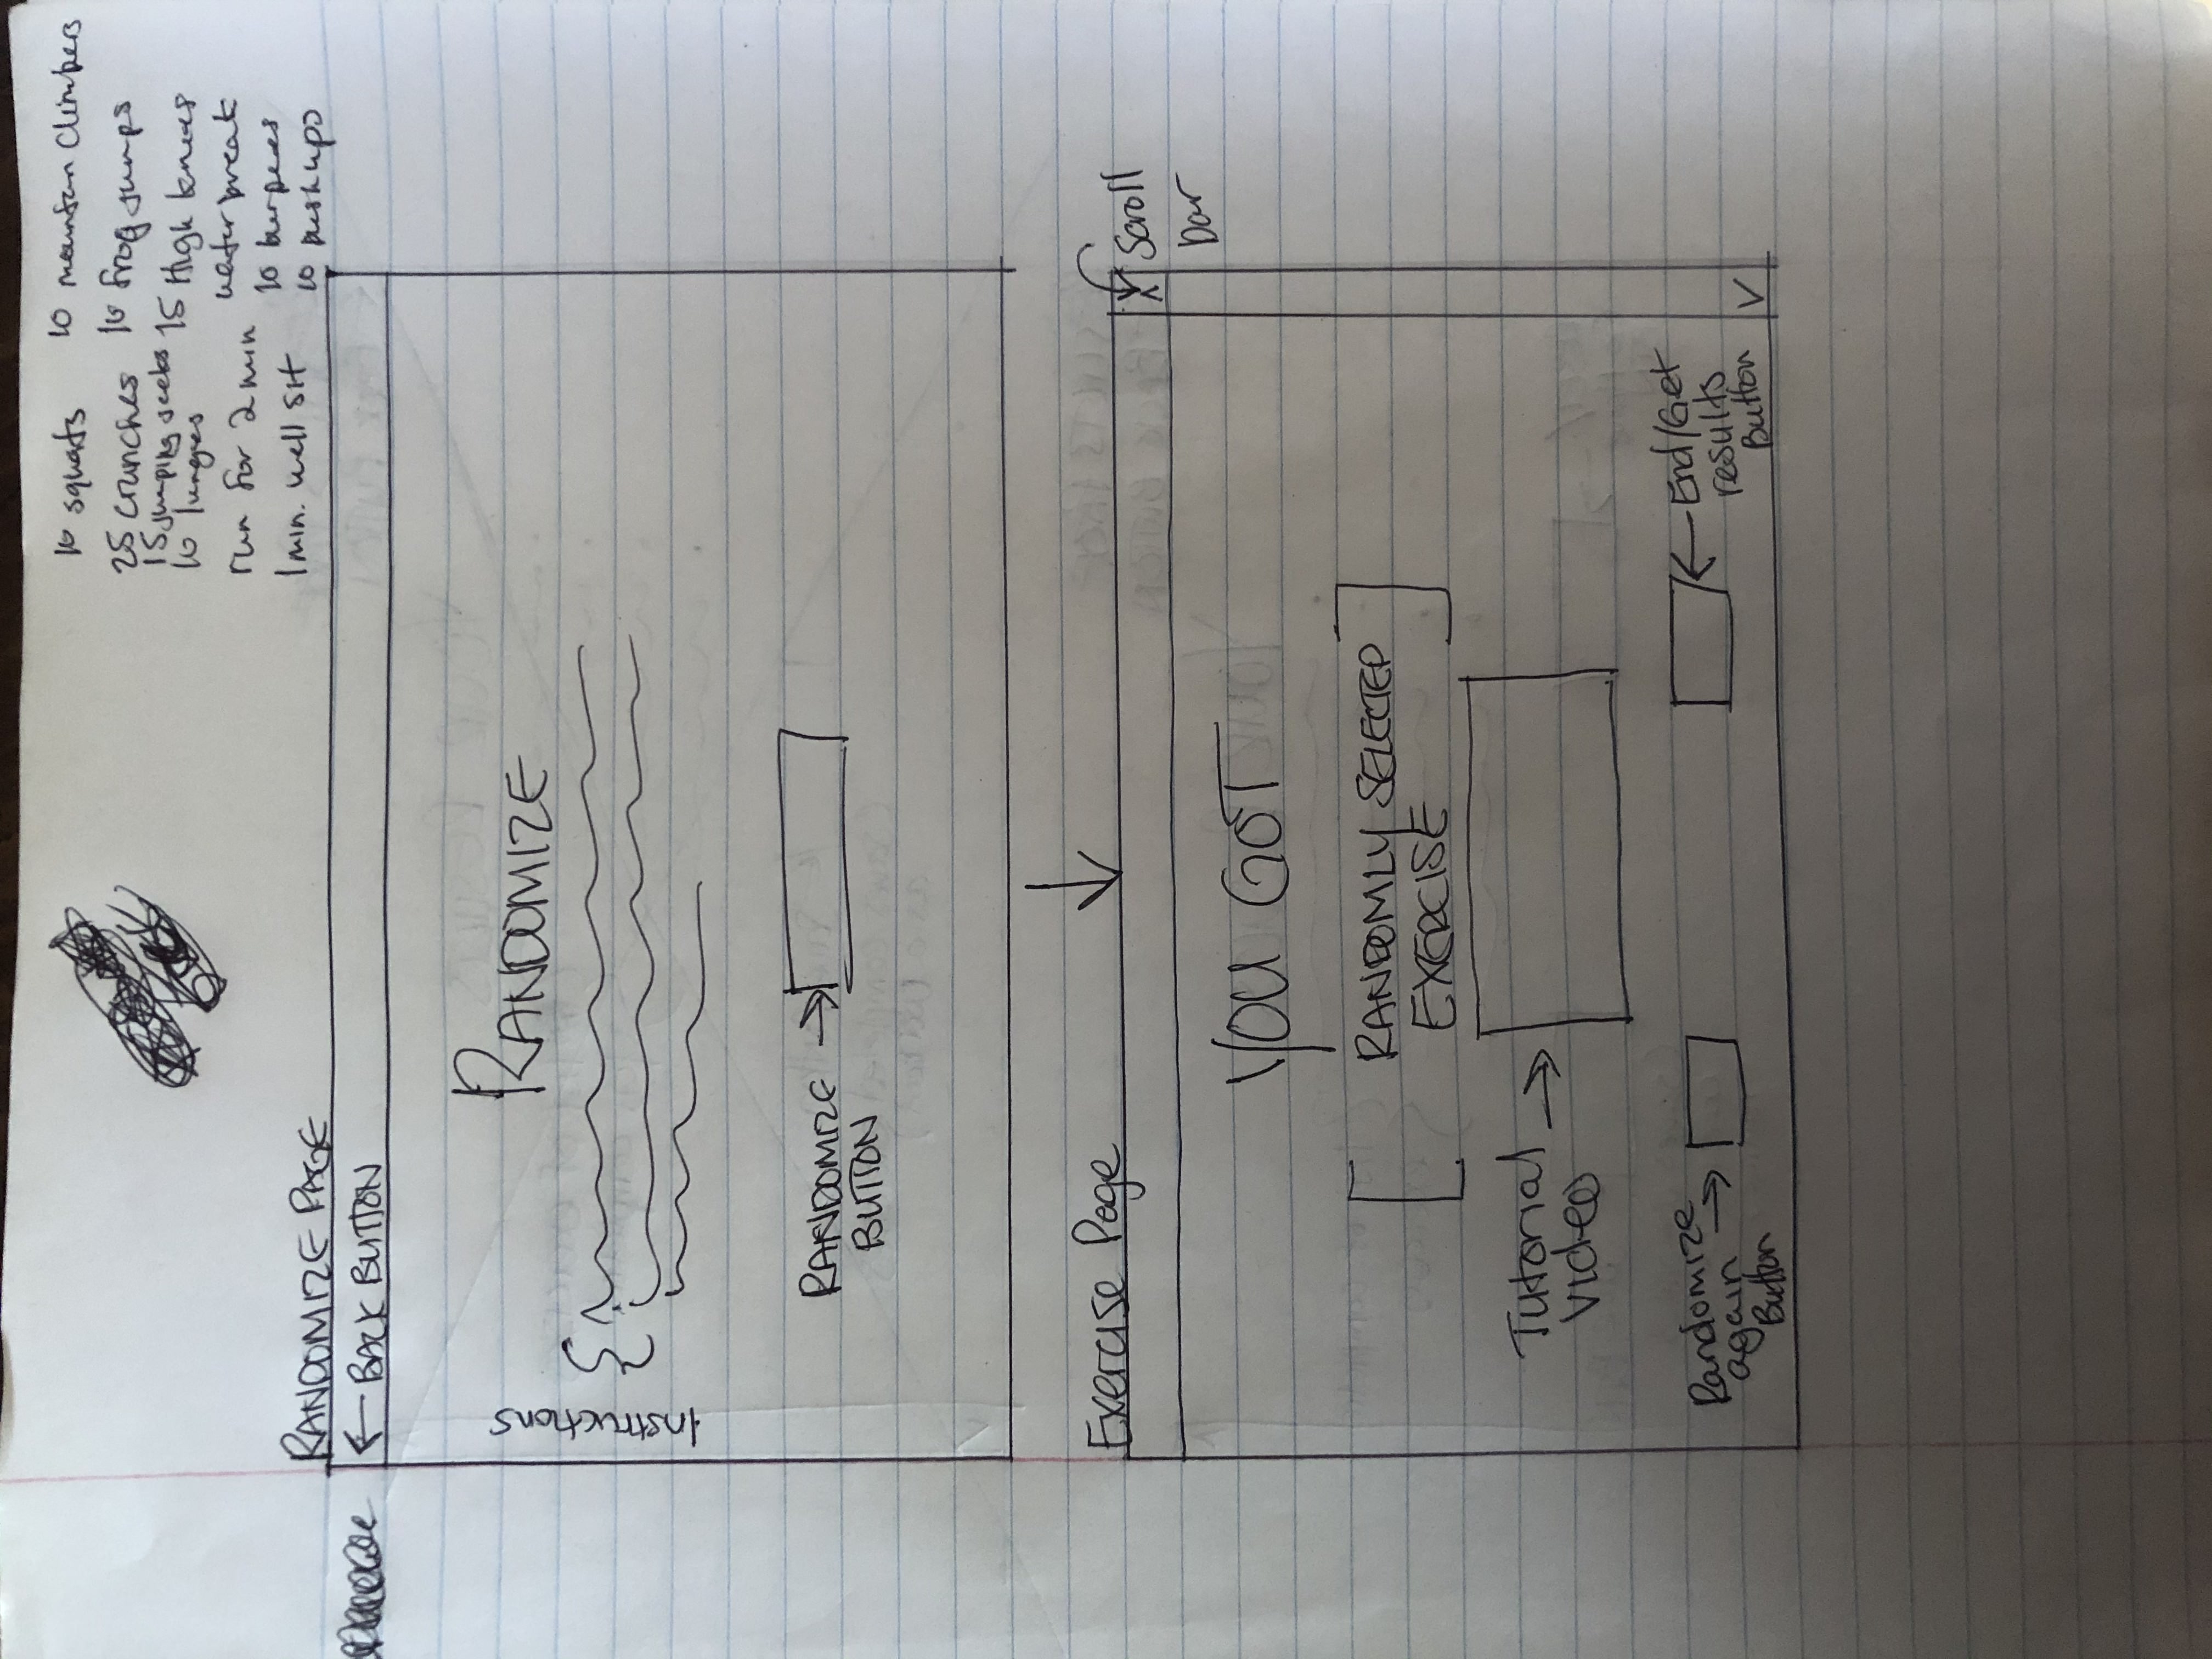 10 squats
25 crunches
15 jumping jacks
10 lunges
run for 2 min
1 min. wall sit
10 mountain climbers
10 frog jumps
15 High knees
water break
10 burpees
10 push ups
RANDOMIZE PAGE
← BACK BUTTON
RANDOMIZE
Instructions
RANDOMIZE
BUTTON
Exercise Page
Scroll
bar
YOU GOT
[RANDOMLY SELECTED
EXERCISE]
Tutorial
Video
Randomize
again
Button
End/Get
results
Button